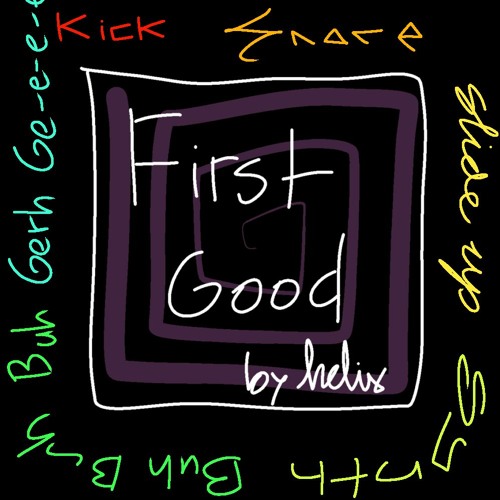 Kick
Snare
slide up
Synth
Buh Buh
Buh Gerh Ge-e-e-e
First
Good
by helix